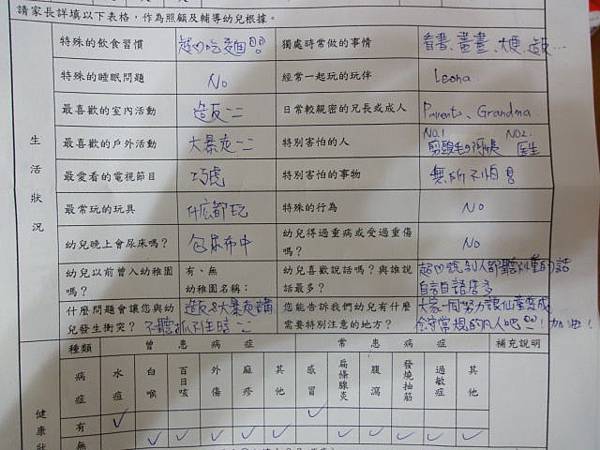 請家長詳填以下表格，作為照顧及輔導幼兒根據。
生活狀況
特殊的飲食習慣 超ㄞ吃麵 獨處時常做的事情 看書、畫畫、大便、造反…
特殊的睡眠問題 No 經常一起玩的玩伴 Leona
最喜歡的室內活動 造反 日常較親密的兄長或成人 Parents、Grandma
最喜歡的戶外活動 大暴走 特別害怕的人 NO1. 剪頭毛的阿姨 NO2. 医生
最愛看的電視節目 巧虎 特別害怕的事物 無所不怕
最常玩的玩具 什麼都玩 特殊的行為 No
幼兒晚上會尿床嗎？ 包尿布中 幼兒得過重病或受過重傷嗎？ No
幼兒以前曾入幼稚園嗎？ 有、無 幼稚園名稱： 幼兒喜歡說話嗎？與誰說話最多？ 自言自語居多
什麼問題會讓您與幼兒發生衝突？ 造反&大暴走 您能告訴我們幼兒有什麼需要特別注意的地方？ 大家一同努力讓仙童變成 守常規的凡人吧！加油！
健康狀
種類 曾患病症 常患病症 補充說明
病症 水痘 白喉 百日咳 外傷 麻疹 其他 感冒 扁條腺炎 腹瀉 發燒抽筋 過敏症 其他
有 ✓ ✓
無 ✓ ✓ ✓ ✓ ✓ ✓ ✓ ✓ ✓ ✓